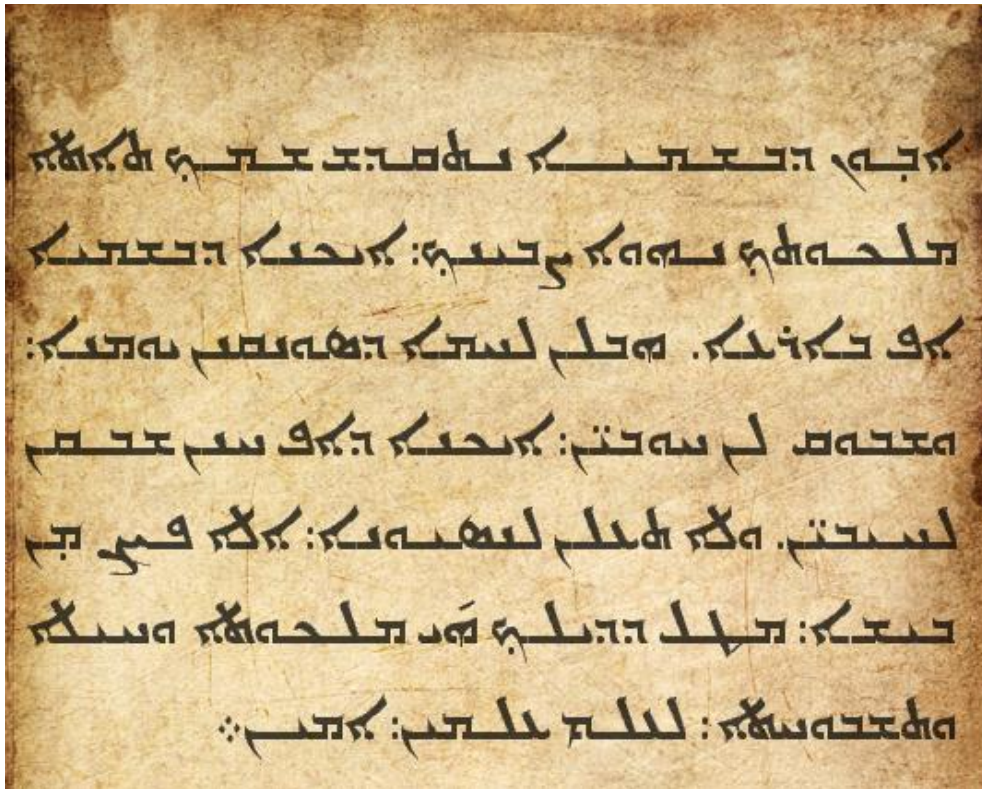 ܐܒ݂ܘܢ ܕܒܫܡܝܐ ܢܬܩܕܫ ܫܡܟ ܬܐܬܐ
ܡܠܟܘܬܟ ܢܗܘܐ ܨܒܝܢܟ: ܐܝܟܢܐ ܕܒܫܡܝܐ
ܐܦ ܒܐܪܥܐ. ܗܒܠܢ ܠܚܡܐ ܕܣܘܢܩܢܢ ܝܘܡܢܐ:
ܘܫܒܘܩ ܠܢ ܚܘܒܝ̈ܢ: ܐܝܟܢܐ ܕܐܦ ܚܢܢ ܫܒܩܢ
ܠܚܝܒܝ̈ܢ. ܘܠܐ ܬܥܠܢ ܠܢܣܝܘܢܐ: ܐܠܐ ܦܨܢ ܡ̣ܢ
ܒܝܫܐ: ܡܛܠ ܕܕܝܠܟ ܗ̄ܝ ܡܠܟܘܬܐ ܘܚܝܠܐ
ܘܬܫܒܘܚܬܐ: ܠܥܠܡ ܥܠܡܝܢ: ܐܡܝܢ܀